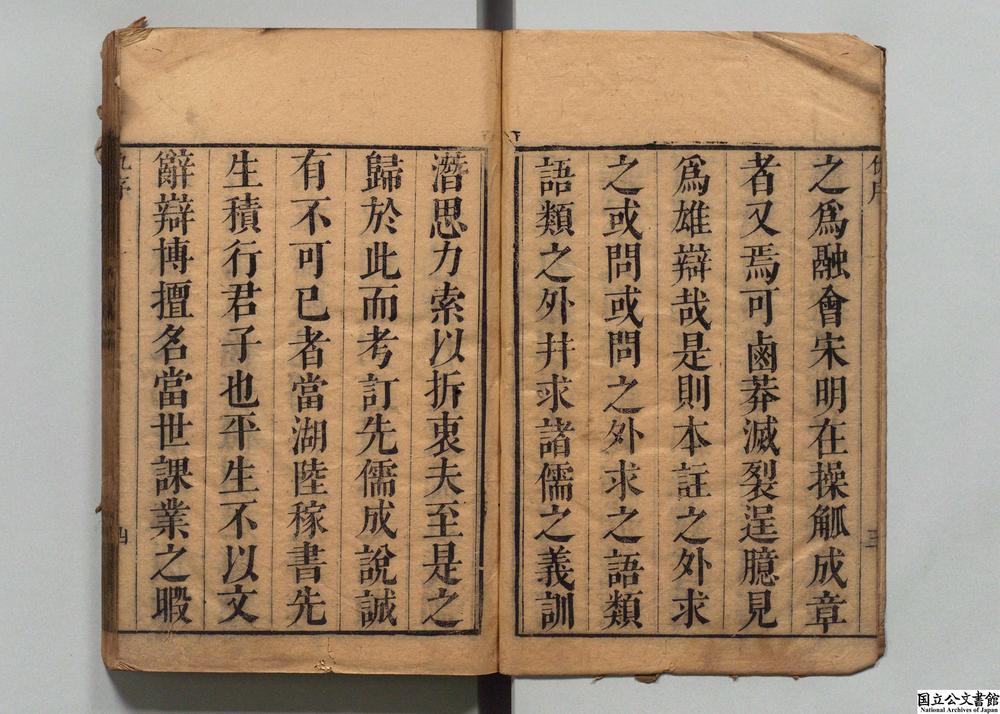 之爲融會宋明在操觚成章
者又焉可鹵莽滅裂逞臆見
爲雄辯哉是則本註之外求
之或問或問之外求之語類
語類之外幷求諸儒之義訓
潛思力索以折衷夫至是之
歸於此而考訂先儒成說誠
有不可已者當湖陸稼書先
生積行君子也平生不以文
辭辯博擅名當世課業之暇
四
国立公文書館
National Archives of Japan